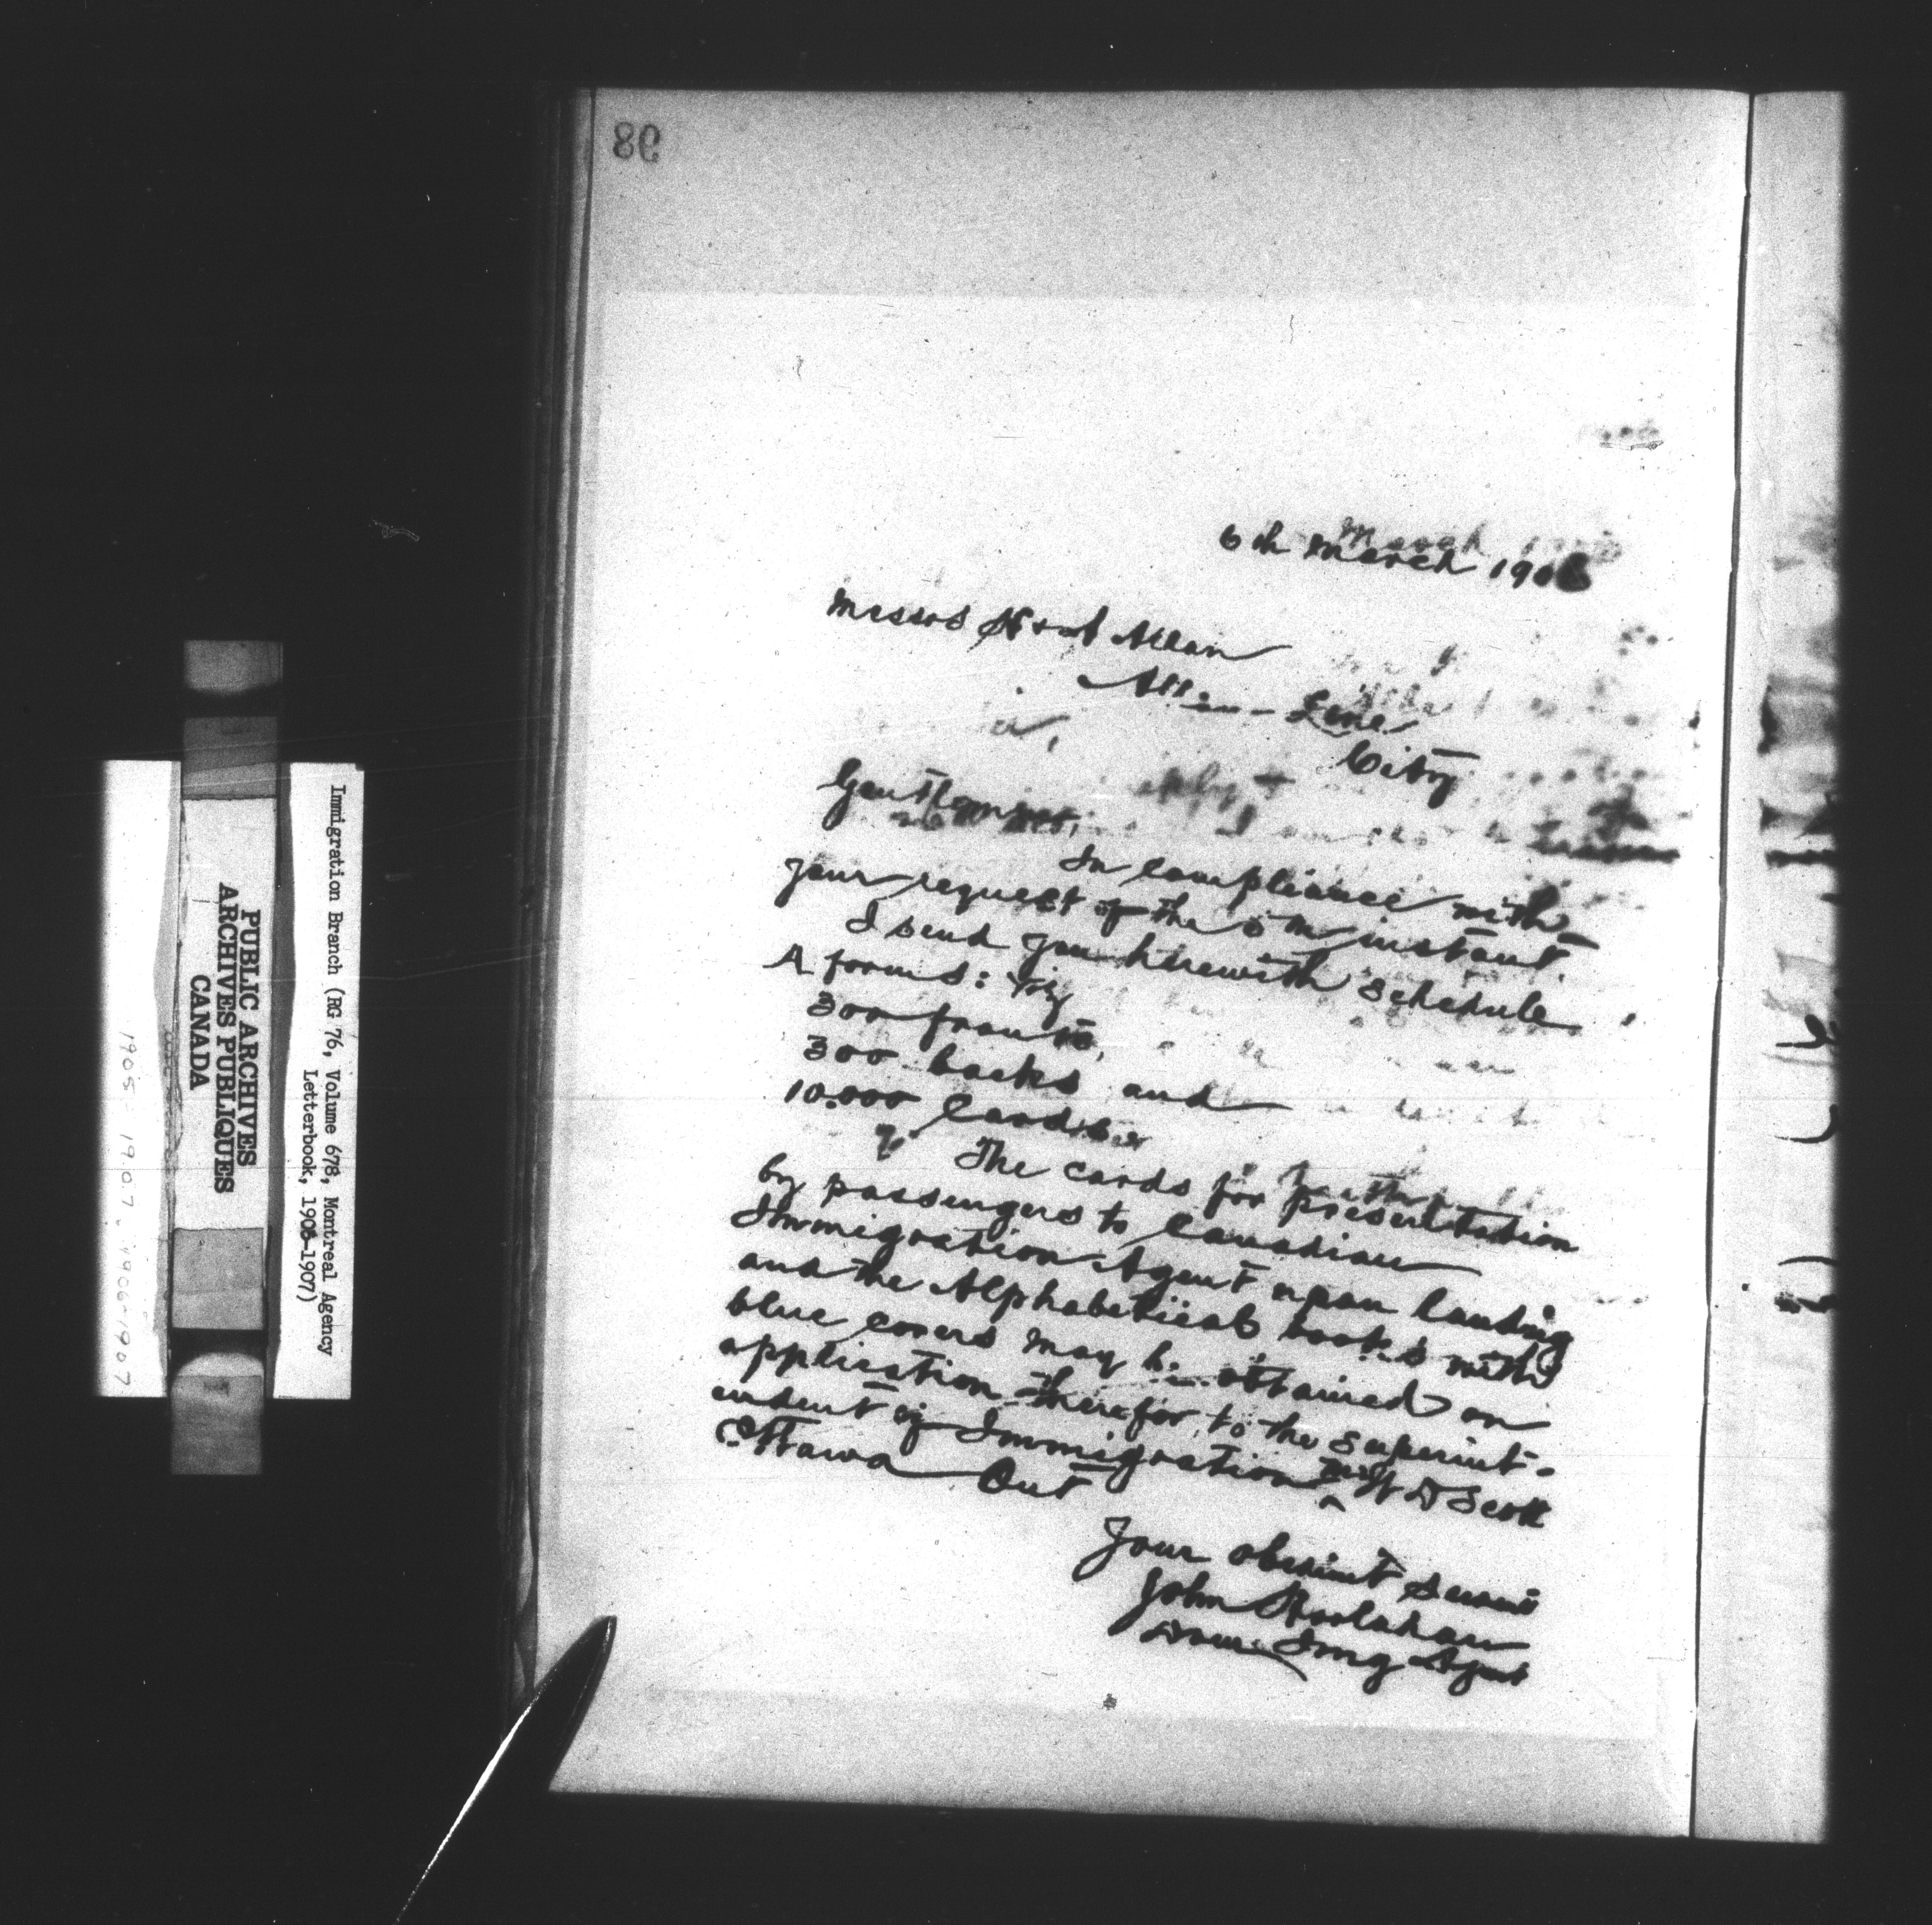 98
6th March 1906
Messrs H & A Allan
Allan-Line
City
Gentlemen,
In compliance with
your request of the 5th instant
I send you herewith schedule
A forms: viz
300 fronts,
300 backs and
10.000 Cards
The cards for presentation
by passengers to Canadian
Immigration Agent upon landing
and the Alphabetical books with
blue covers may be obtained on
application therefor to the superint-
endent of Immigration Mr W D Scott
Ottawa Ont
Your obedient
John Hoolahan
Dom Img Agent
PUBLIC ARCHIVES
ARCHIVES PUBLIQUES
CANADA
Immigration Branch (RG 76, Volume 678, Montreal Agency
Letterbook, 1906-1907)
1905-1907, 1906-1907